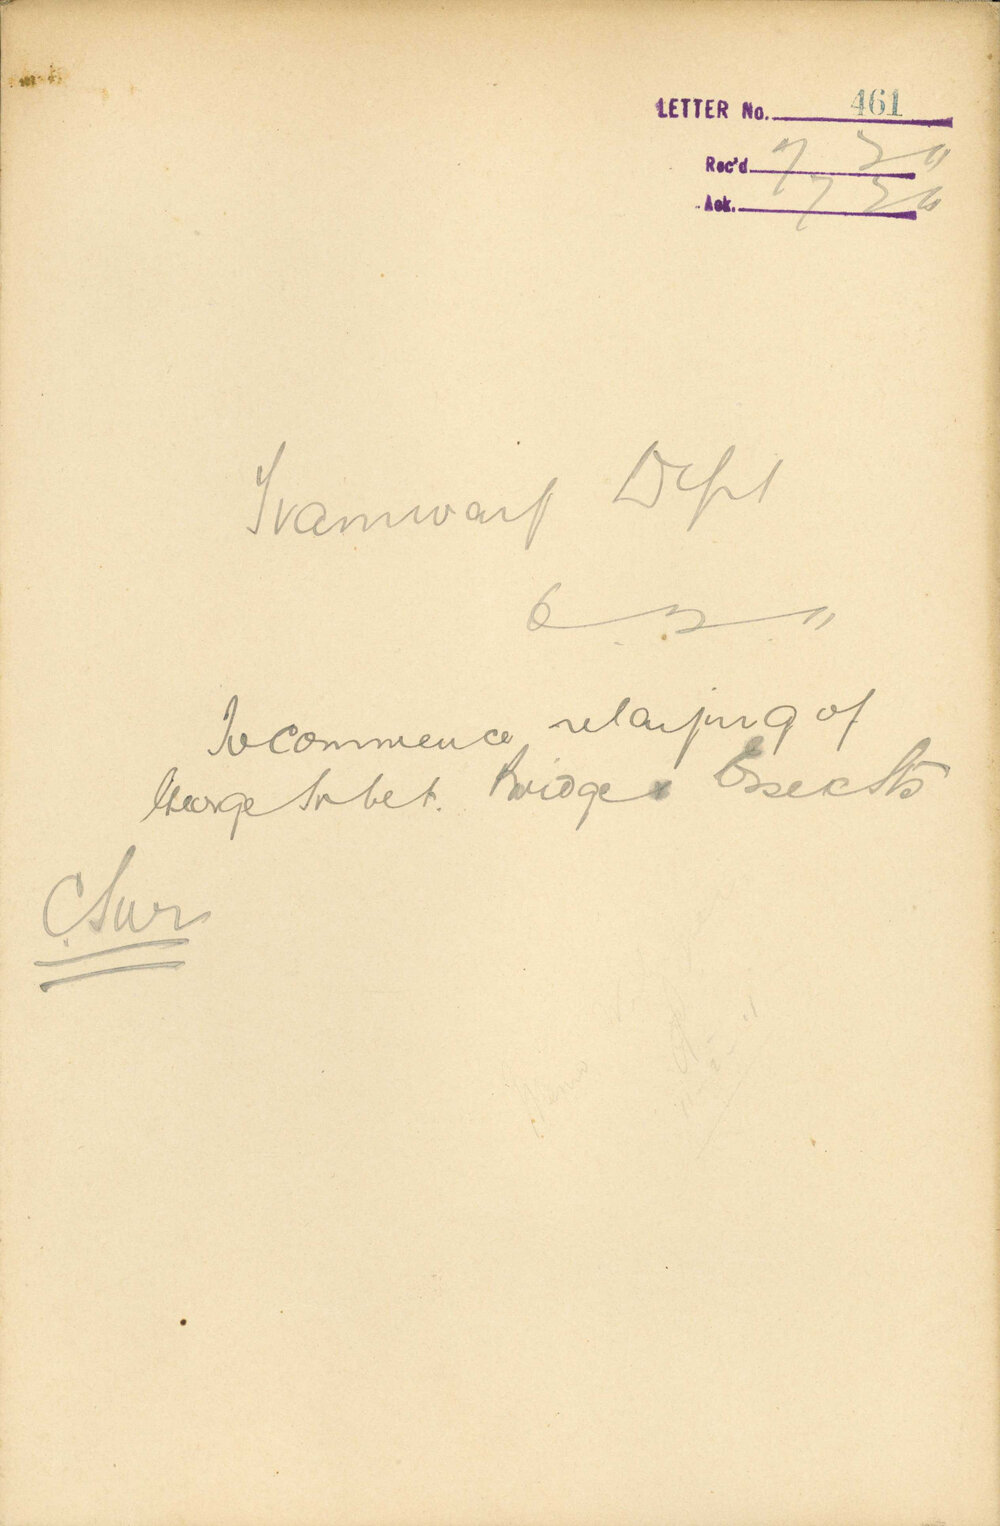 LETTER No. 461
Rec'd 7 3 11
Ack. 7 3 11
Tramway Dept
6 3 11
To commence relaying of
George St bet. Bridge & Essex Sts
C Sur